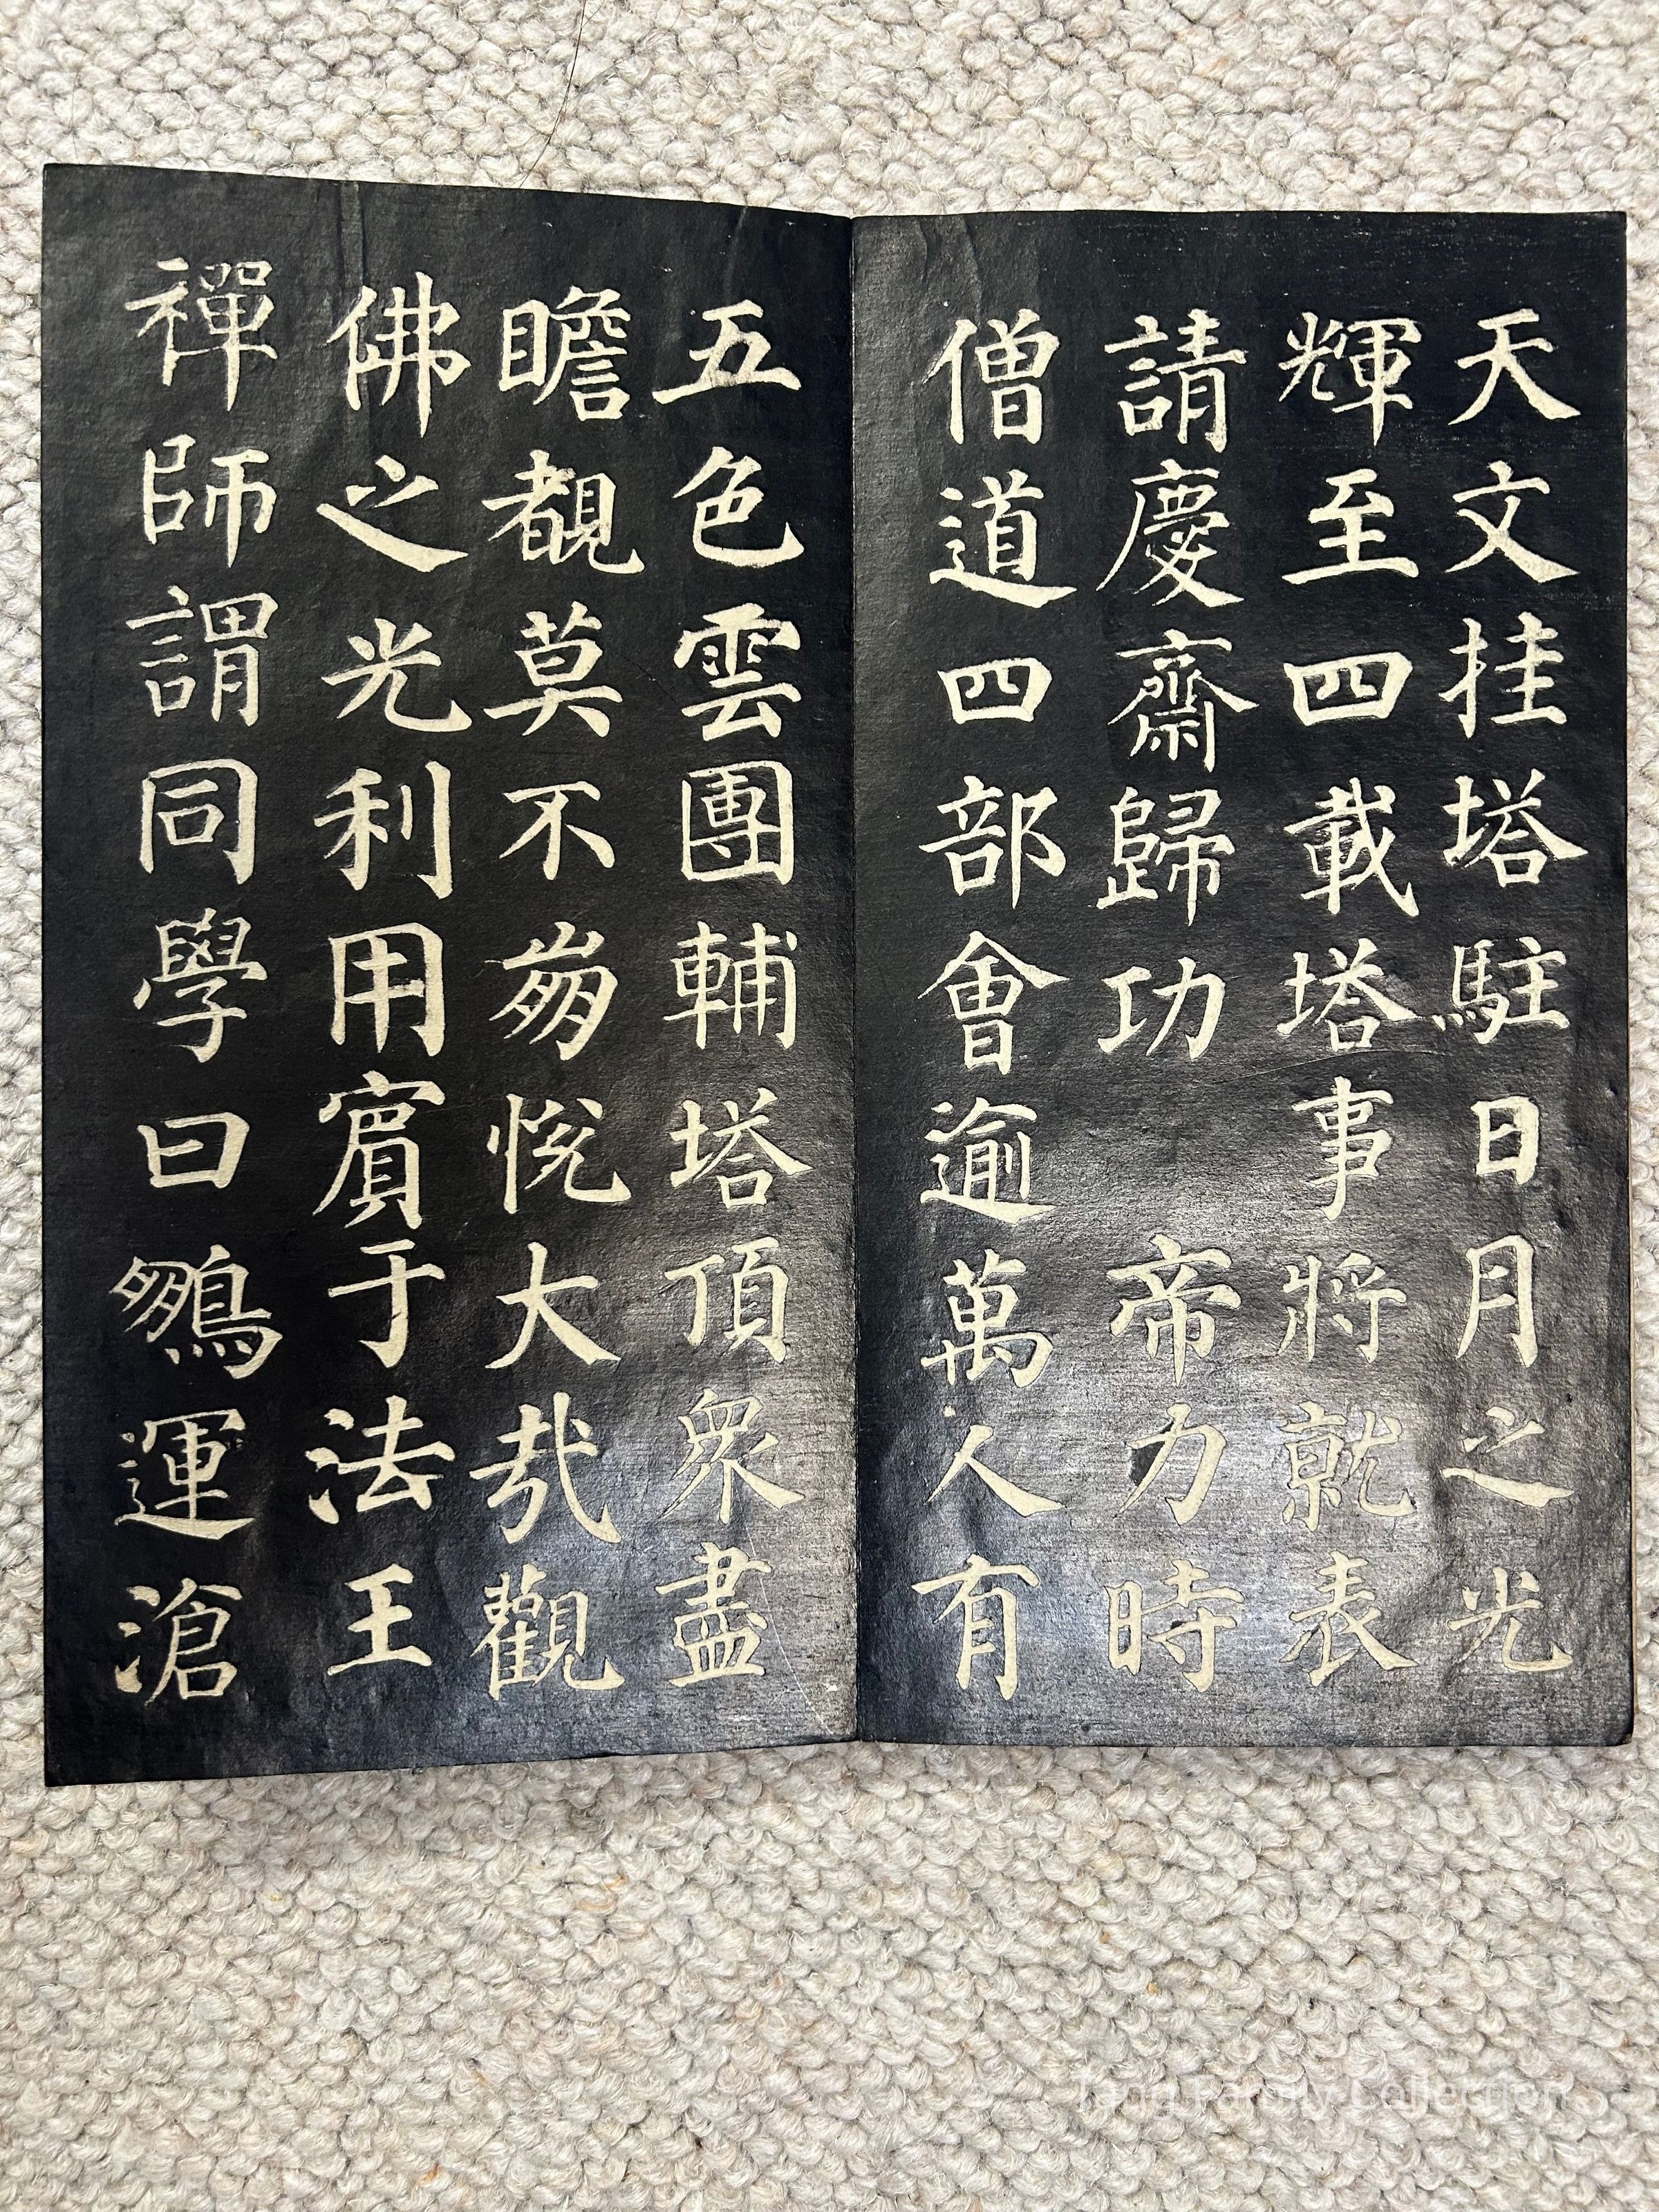 天文挂塔駐日月之光
輝至四載塔事將就表
請慶齋歸功 帝力時
僧道四部會逾萬人有
五色雲團輔塔頂衆盡
瞻覩莫不崩悅大哉觀
佛之光利用賓于法王
禪師謂同學曰鵬運滄
Tang Family Collection